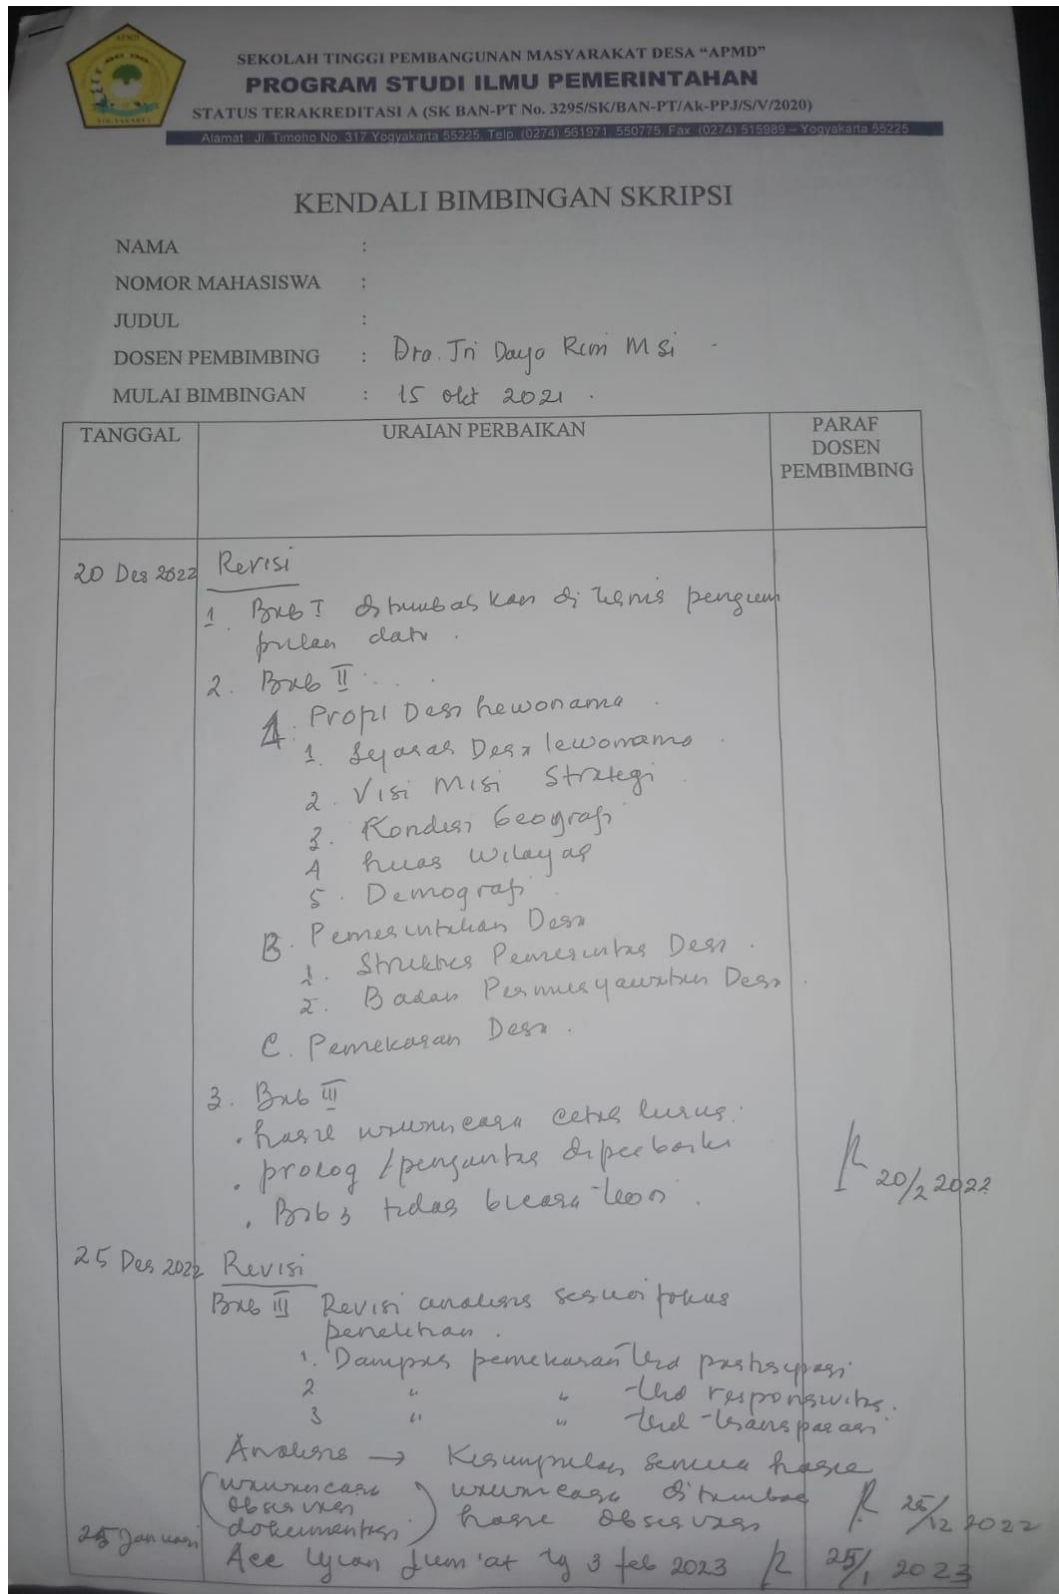 APMD
YOGYAKARTA
SEKOLAH TINGGI PEMBANGUNAN MASYARAKAT DESA “APMD”
PROGRAM STUDI ILMU PEMERINTAHAN
STATUS TERAKREDITASI A (SK BAN-PT No. 3295/SK/BAN-PT/Ak-PPJ/S/V/2020)
Alamat : Jl. Timoho No. 317 Yogyakarta 55225, Telp. (0274) 561971, 550775, Fax. (0274) 515989 – Yogyakarta 55225
KENDALI BIMBINGAN SKRIPSI
NAMA :
NOMOR MAHASISWA :
JUDUL :
DOSEN PEMBIMBING : Dra. Tri Daya Rini M Si
MULAI BIMBINGAN : 15 okt 2021 .
TANGGAL URAIAN PERBAIKAN PARAF DOSEN PEMBIMBING
20 Des 2022 Revisi
1. Bab I ditambahkan di teknis pengum
pulan data .
2. Bab II . . .
A. Profil Desa Lewonama .
1. Sejarah Desa lewonama .
2. Visi Misi Strategi
3. Kondisi Geografi
4 Luas Wilayah
5. Demografi
B. Pemerintahan Desa
1. Struktur Pemerintah Desa .
2. Badan Permusyawaratan Desa .
C. Pemekaran Desa .
3. Bab III
. hasil wawancara cetak lurus .
. prolog / pengantar diperbaiki
. Bab 3 tidak bicara teori . 20/2 2022
25 Des 2022 Revisi
Bab III Revisi analisis sesuai fokus
penelitian .
1. Dampak pemekaran thd partisipasi
2 " " thd responsivitas.
3 " " thd transparasi
Analisis → Kesimpulan semua hasil
(wawancara wawancara ditambah
observasi hasil observasi 25/12 2022
dokumentasi)
25 Januari Acc Ujian Jum'at tg 3 feb 2023 25/1 2023